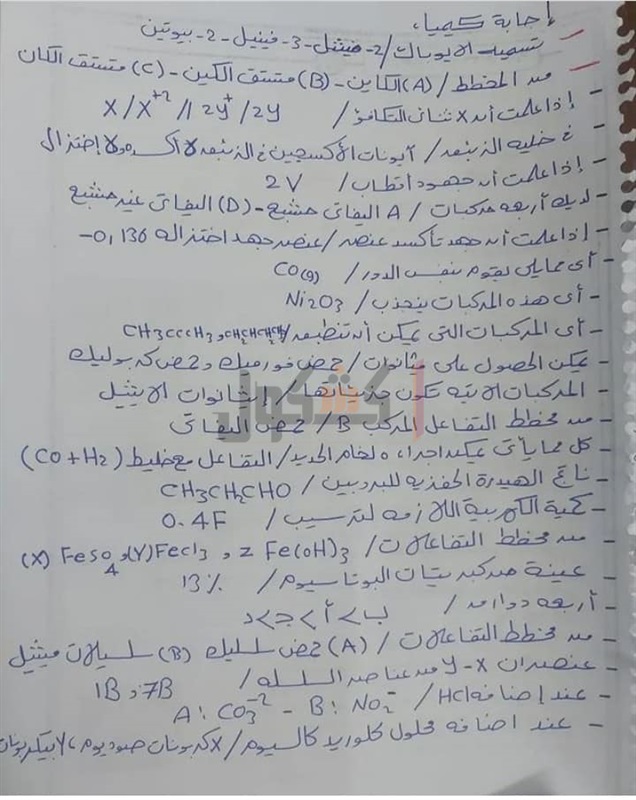 إجابة كيمياء
تسميه الايوباك / 2- ميثيل -3- فينيل -2- بيوتين
من المخطط / (A) الكاين - (B) مشتق الكين - (C) مشتق الكان
- إذا علمت أن X ثنائى التكافؤ / X/X+2 // 2y+/2y
- فى خليه الزئبق / أيونات الأكسجين فى الزئبق لا أكسده ولا إختزال
- إذا علمت أن جهود أقطاب / 2V
- لديك أربعه مركبات / A اليفاتى مشبع - (D) اليفاتى غير مشبع
- إذا علمت أن جهد تأكسد عنصر / عنصر جهد اختزاله 0,136-
- أى ممايلى يقوم بنفس الدور / CO(g)
- أى هذه المركبات ينجذب / Ni2O3
- أى المركبات التى يمكن أن تنطبق /
- يمكن الحصول على ميثانوات / حمض فورميك وحمض كربوليك
- المركبات الاتيه تكون جزيئاتها / إيثانوات الايثيل
- من مخطط التفاعل المركب B / حمض اليفاتى
- كل ممايأتى يمكن اجراءه لخام الحديد / التفاعل مع خليط (CO+H2)
- ناتج الهيدرة الحفزيه للبروبين / CH3CH2CHO
- كمية الكهربية اللازمه لترسيب / 0.4F
- من مخطط التفاعلات / (X) FeSO4 و (Y) FeCl3 و z Fe(OH)3
- عينة من كبريتات البوتاسيوم / 13%
- أربعه دوارق / ب > أ > ج > د
- من مخطط التفاعلات / (A) حمض سلسليك (B) سلسيلات ميثيل
- عنصران X-y من عناصر السلسله / 1B و 7B
- عند إضافة HCl / A: CO3-2 - B: NO2-
- عند اضافه محلول كلوريد كالسيوم / X كربونات صوديوم ، Y بيكربونات
كشكول